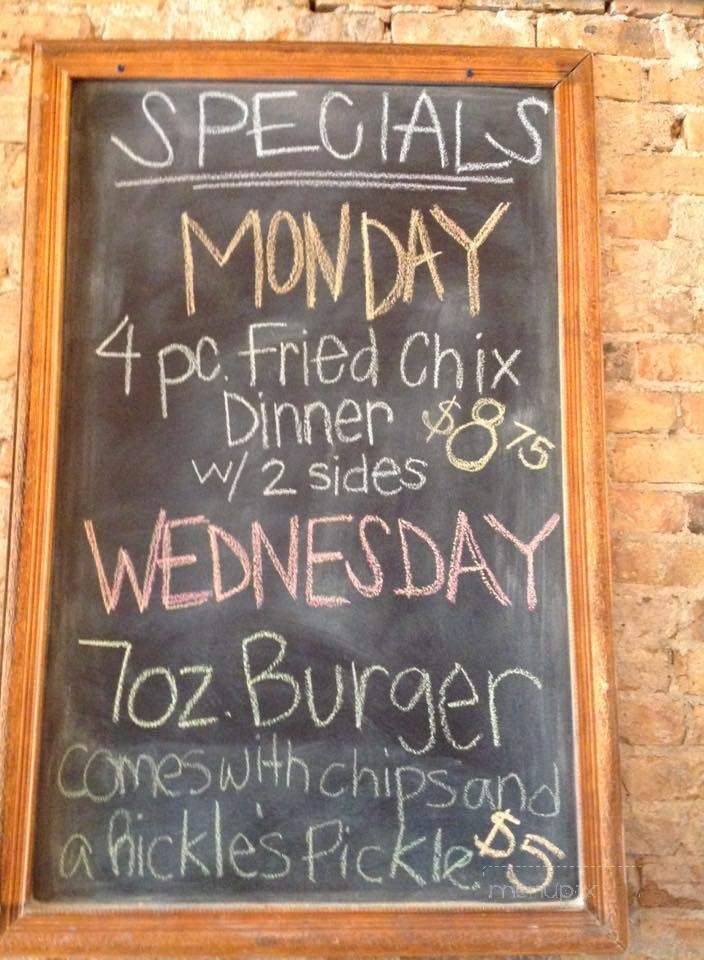 SPECIALS
MONDAY
4 pc. Fried Chix
Dinner $8.75
w/ 2 sides
WEDNESDAY
7oz. Burger
comes with chips and
a Rickle's Pickle. $5
menupix